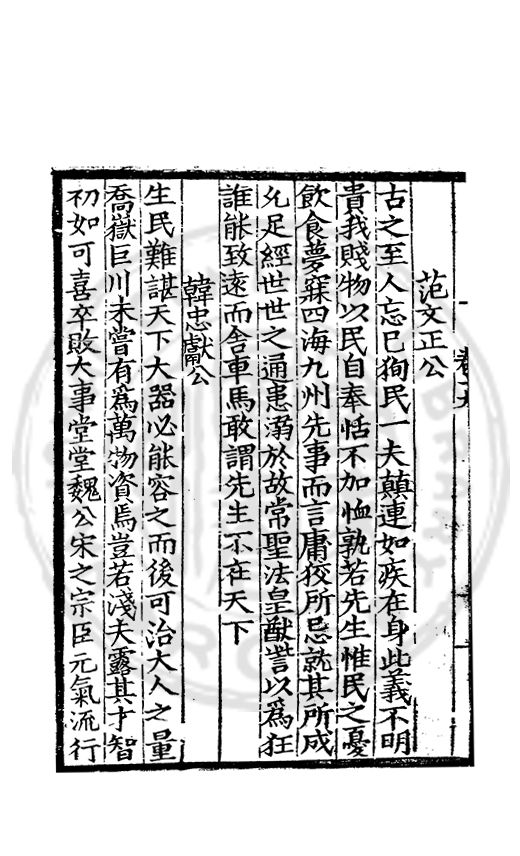 范文正公
古之至人忘已狥民一夫顛連如疾在身此義不明
貴我賤物以民自奉恬不加恤孰若先生惟民之憂
飲食夢寐四海九州先事而言庸狡所忌就其所成
允足經世世之通患溺於故常聖法皇猷訾以為狂
誰能致遠而舍車馬敢謂先生不在天下
韓忠獻公
生民難諶天下大器必能容之而後可治大人之量
喬嶽巨川未嘗有為萬物資焉豈若淺夫露其才智
初如可喜卒敗大事堂堂魏公宋之宗臣元氣流行